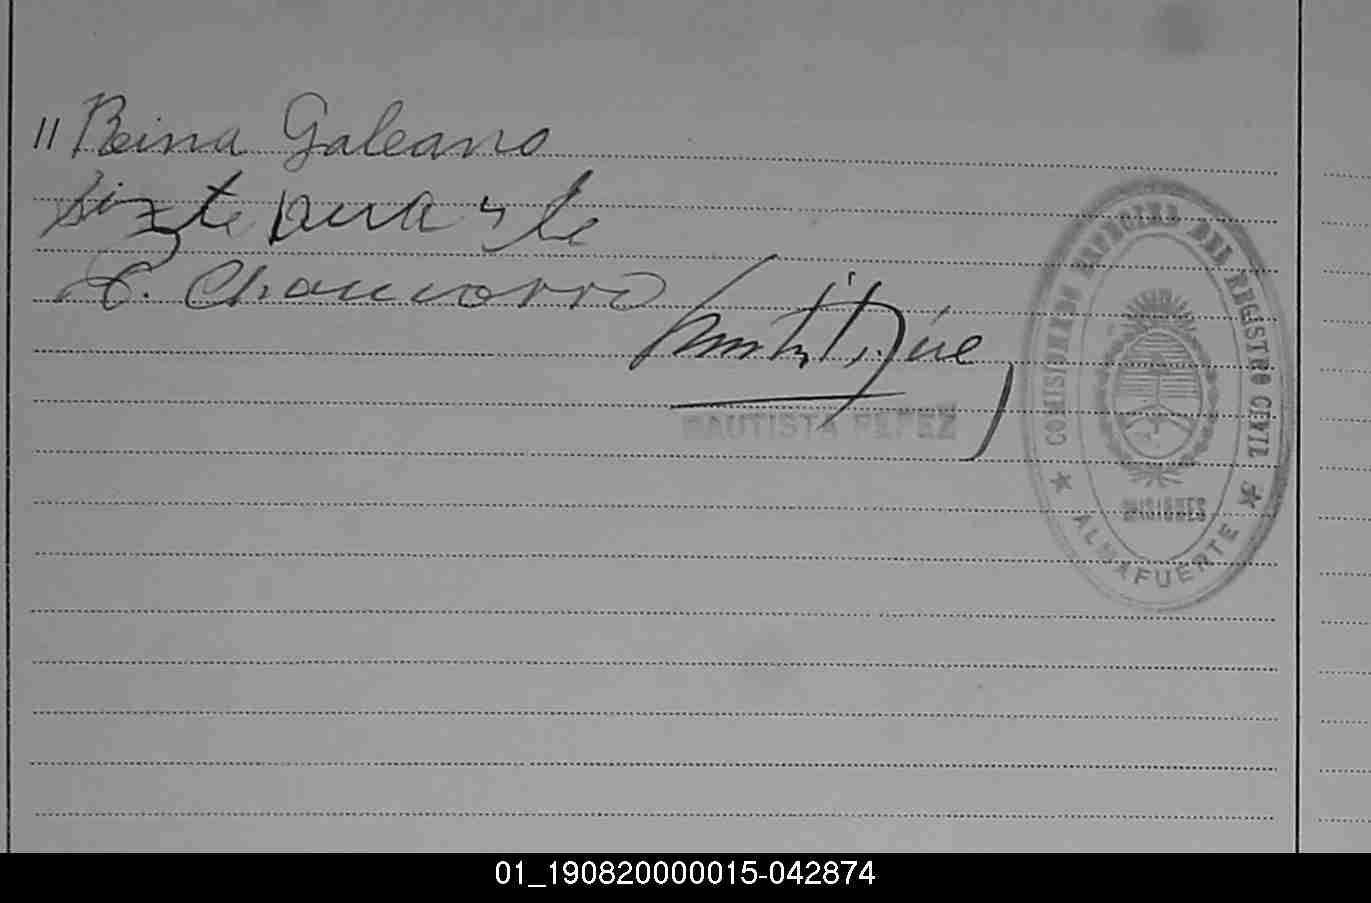 " Reina Galeano
Sixto
E. Chamorro
BAUTISTA PEREZ
COMISIONADO ESPECIAL DEL REGISTRO CIVIL
MISIONES
★ ALMAFUERTE ★
01_190820000015-042874